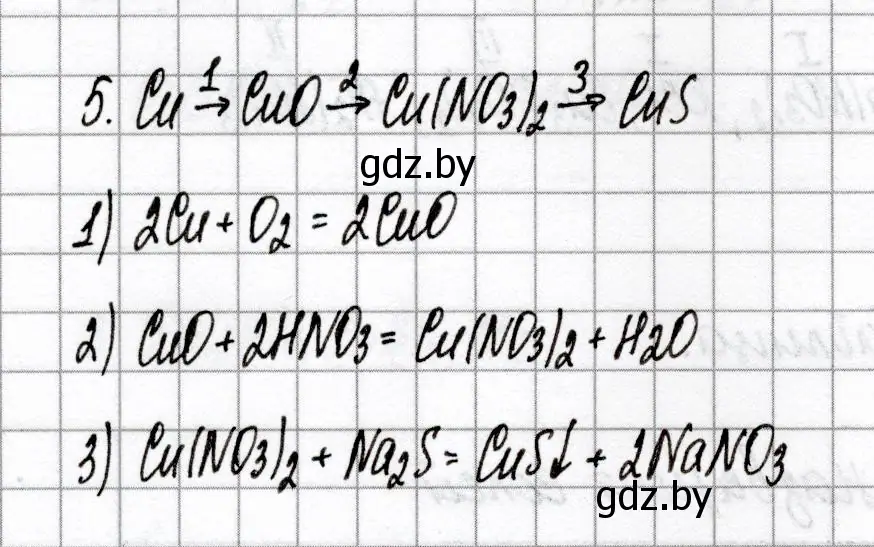 5. Cu 1→ CuO 2→ Cu(NO3)2 3→ CuS
gdz.by
1) 2Cu + O2 = 2CuO
2) CuO + 2HNO3 = Cu(NO3)2 + H2O
3) Cu(NO3)2 + Na2S = CuS↓ + 2NaNO3
gdz.by